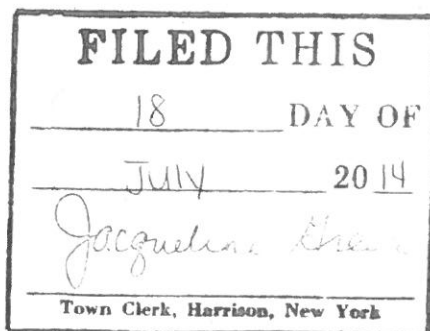 FILED THIS
18 DAY OF
JULY 20 14
Jacqueline
Town Clerk, Harrison, New York